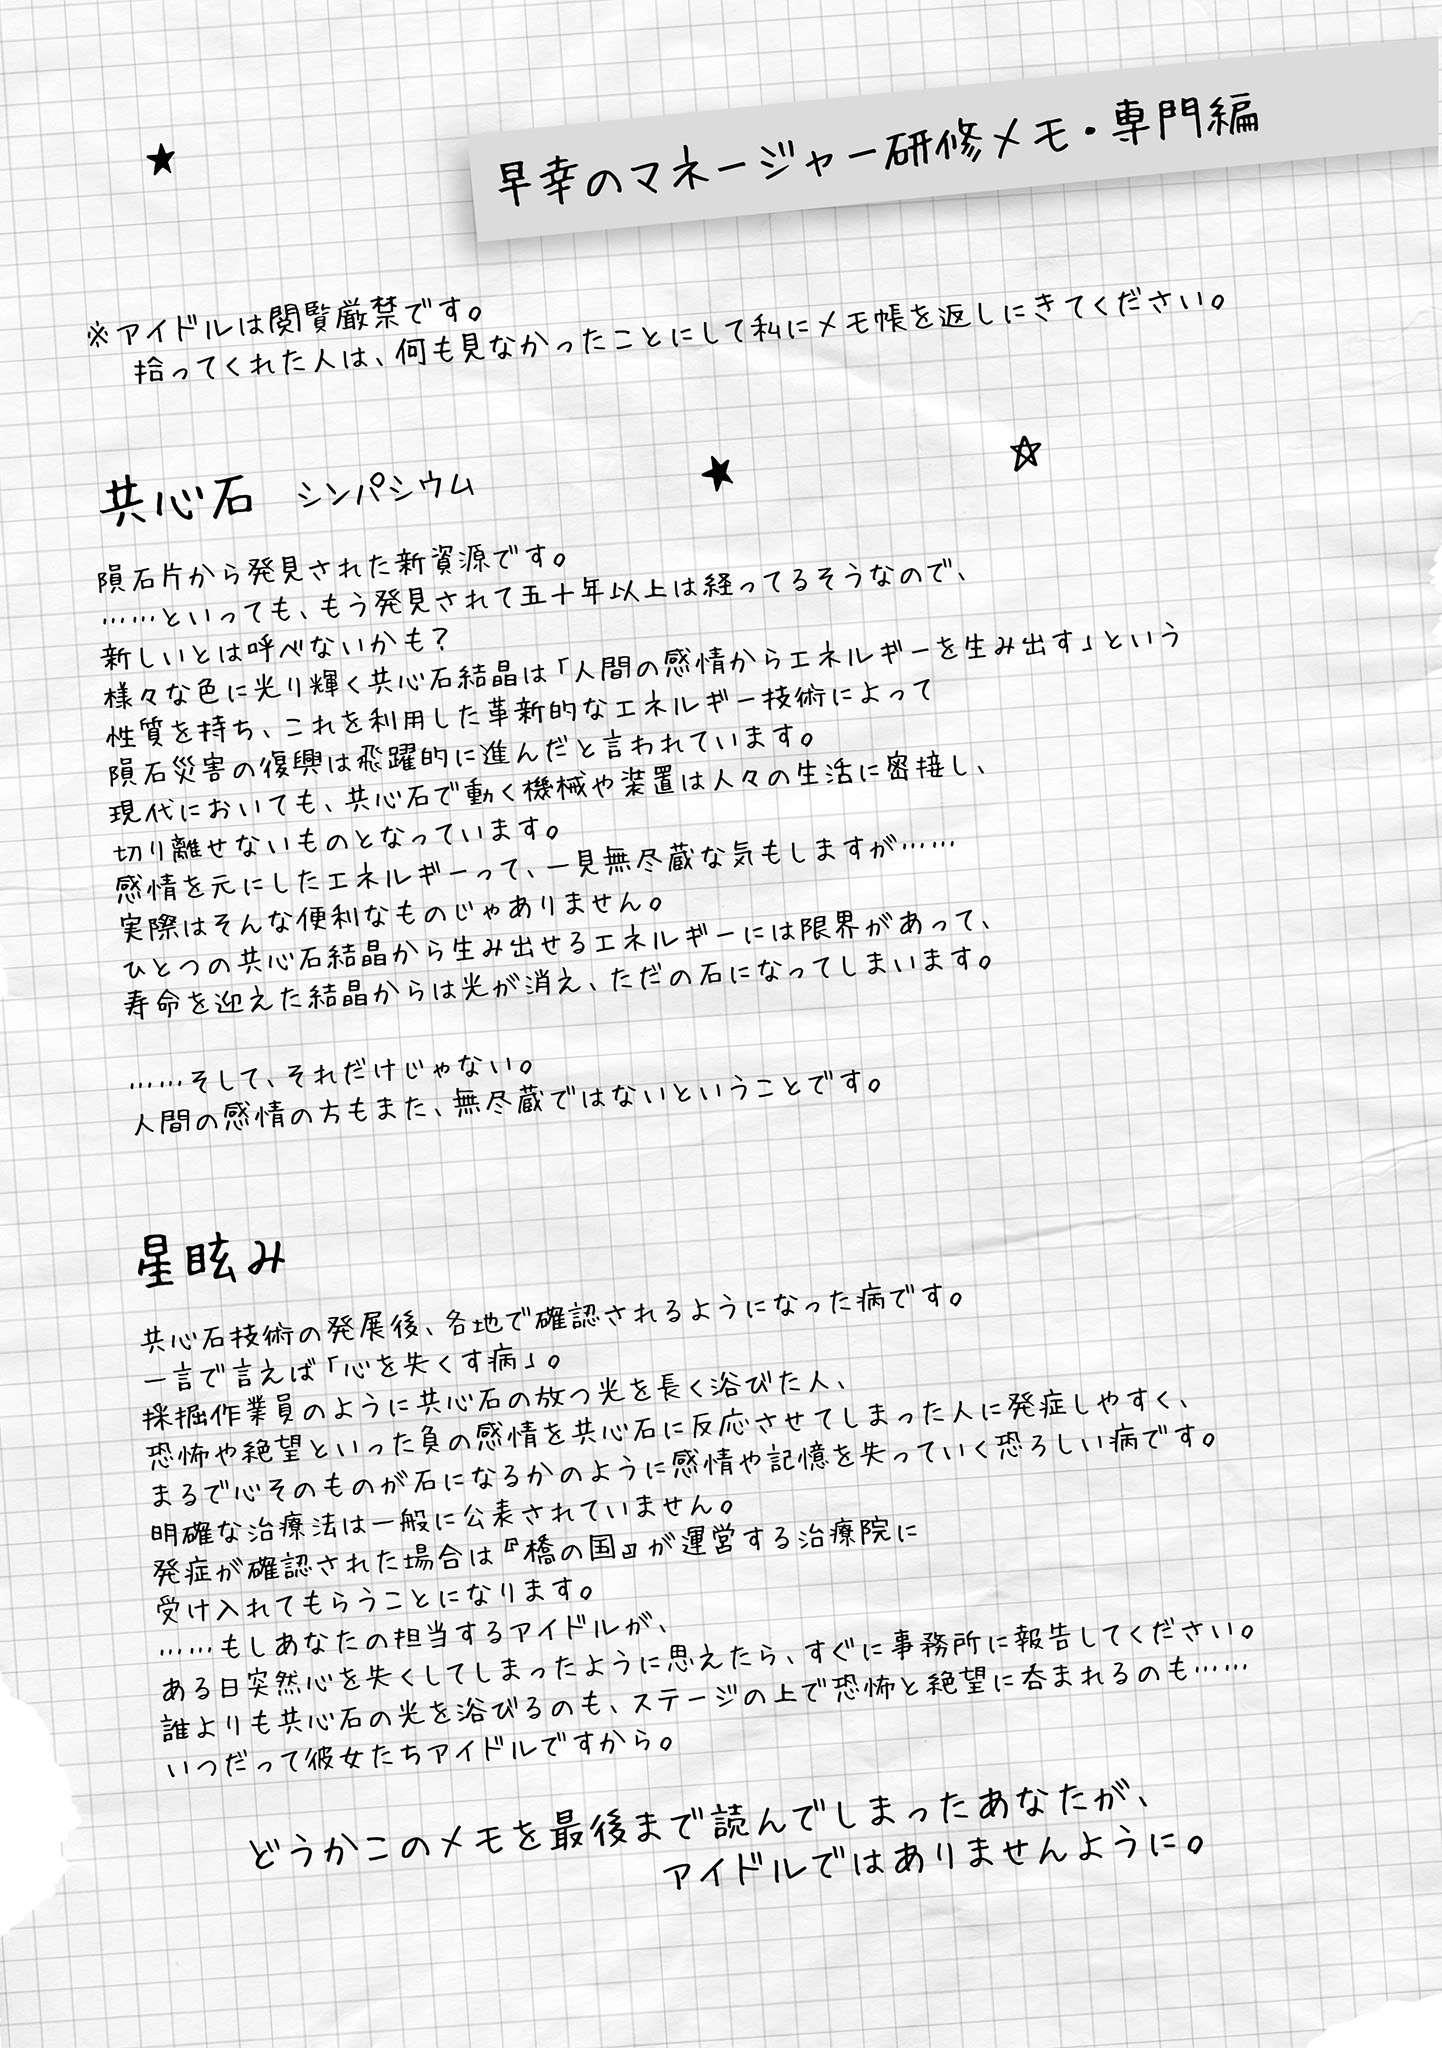 早幸のマネージャー研修メモ・専門編
※アイドルは閲覧厳禁です。
拾ってくれた人は、何も見なかったことにして私にメモ帳を返しにきてください。
共心石 シンパシウム
隕石片から発見された新資源です。
……といっても、もう発見されて五十年以上は経ってるそうなので、
新しいとは呼べないかも？
様々な色に光り輝く共心石結晶は「人間の感情からエネルギーを生み出す」という
性質を持ち、これを利用した革新的なエネルギー技術によって
隕石災害の復興は飛躍的に進んだと言われています。
現代においても、共心石で動く機械や装置は人々の生活に密接し、
切り離せないものとなっています。
感情を元にしたエネルギーって、一見無尽蔵な気もしますが……
実際はそんな便利なものじゃありません。
ひとつの共心石結晶から生み出せるエネルギーには限界があって、
寿命を迎えた結晶からは光が消え、ただの石になってしまいます。
……そして、それだけじゃない。
人間の感情の方もまた、無尽蔵ではないということです。
星眩み
共心石技術の発展後、各地で確認されるようになった病です。
一言で言えば「心を失くす病」。
採掘作業員のように共心石の放つ光を長く浴びた人、
恐怖や絶望といった負の感情を共心石に反応させてしまった人に発症しやすく、
まるで心そのものが石になるかのように感情や記憶を失っていく恐ろしい病です。
明確な治療法は一般に公表されていません。
発症が確認された場合は『橋の国』が運営する治療院に
受け入れてもらうことになります。
……もしあなたの担当するアイドルが、
ある日突然心を失くしてしまったように思えたら、すぐに事務所に報告してください。
誰よりも共心石の光を浴びるのも、ステージの上で恐怖と絶望に呑まれるのも……
いつだって彼女たちアイドルですから。
どうかこのメモを最後まで読んでしまったあなたが、
アイドルではありませんように。